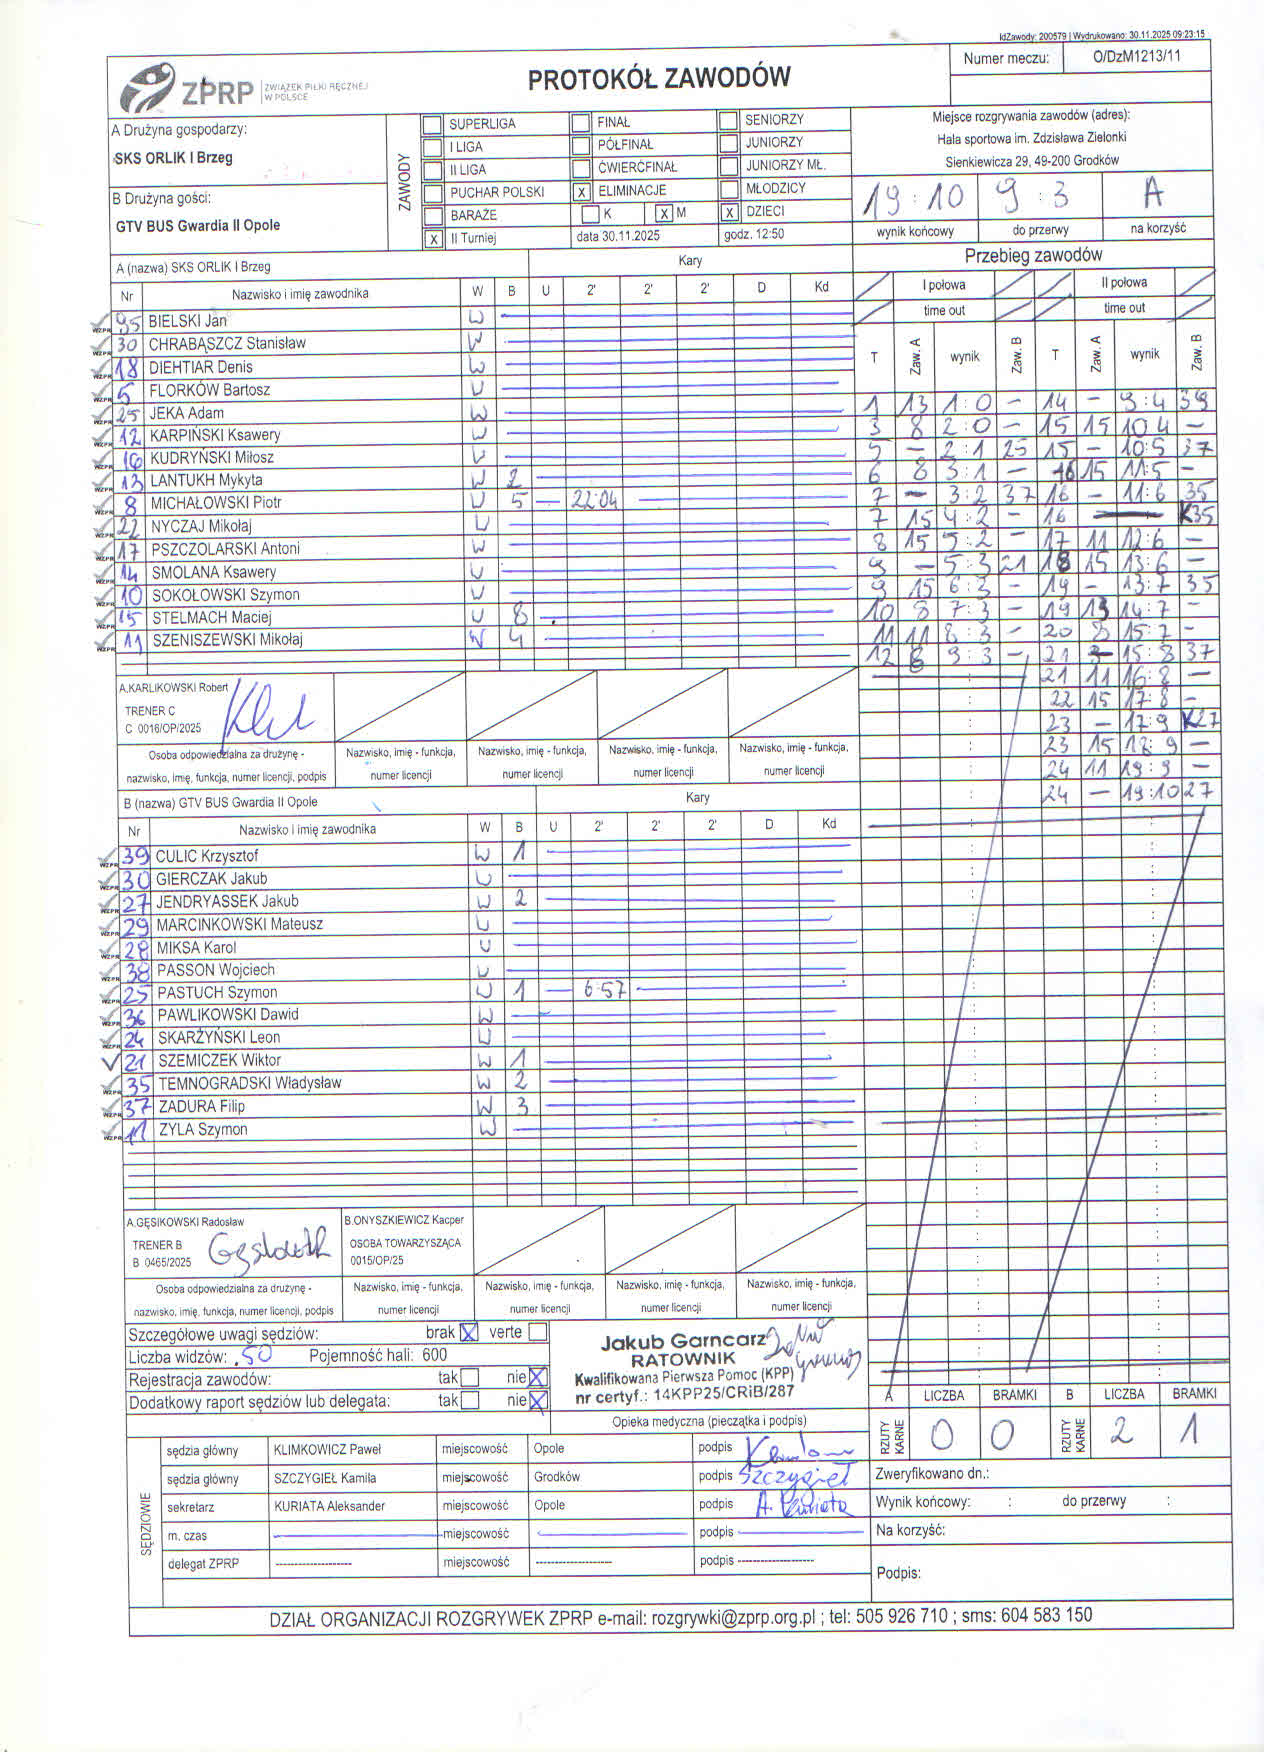 IdZawody: 200579 | Wydrukowano: 30.11.2025 09:23:15
ZPRP ZWIĄZEK PIŁKI RĘCZNEJ W POLSCE
PROTOKÓŁ ZAWODÓW
Numer meczu: O/DzM1213/11
A Drużyna gospodarzy:
SKS ORLIK I Brzeg
B Drużyna gości:
GTV BUS Gwardia II Opole
ZAWODY
SUPERLIGA FINAŁ SENIORZY
I LIGA PÓŁFINAŁ JUNIORZY
II LIGA ĆWIERĆFINAŁ JUNIORZY MŁ.
PUCHAR POLSKI x ELIMINACJE MŁODZICY
BARAŻE K x M x DZIECI
x II Turniej data 30.11.2025 godz. 12:50
Miejsce rozgrywania zawodów (adres):
Hala sportowa im. Zdzisława Zielonki
Sienkiewicza 29, 49-200 Grodków
19:10 9:3 A
wynik końcowy do przerwy na korzyść
A (nazwa) SKS ORLIK I Brzeg Kary
Nr Nazwisko i imię zawodnika W B U 2' 2' 2' D Kd
95 BIELSKI Jan W
30 CHRABĄSZCZ Stanisław W
18 DIEHTIAR Denis W
5 FLORKÓW Bartosz W
25 JEKA Adam W
12 KARPIŃSKI Ksawery W
16 KUDRYŃSKI Miłosz W
13 LANTUKH Mykyta W 2
8 MICHAŁOWSKI Piotr W 5 — 22:04
22 NYCZAJ Mikołaj W
17 PSZCZOLARSKI Antoni W
14 SMOLANA Ksawery W
10 SOKOŁOWSKI Szymon W
15 STELMACH Maciej W 8
11 SZENISZEWSKI Mikołaj W 4
A.KARLIKOWSKI Robert
TRENER C
C 0016/OP/2025
Osoba odpowiedzialna za drużynę - nazwisko, imię, funkcja, numer licencji, podpis
Nazwisko, imię - funkcja, numer licencji
Nazwisko, imię - funkcja, numer licencji
Nazwisko, imię - funkcja, numer licencji
Nazwisko, imię - funkcja, numer licencji
B (nazwa) GTV BUS Gwardia II Opole Kary
Nr Nazwisko i imię zawodnika W B U 2' 2' 2' D Kd
39 CULIC Krzysztof W 1
30 GIERCZAK Jakub W
27 JENDRYASSEK Jakub W 2
29 MARCINKOWSKI Mateusz W
28 MIKSA Karol W
38 PASSON Wojciech W
25 PASTUCH Szymon W 1 — 6:57
36 PAWLIKOWSKI Dawid W
24 SKARŻYŃSKI Leon W
21 SZEMICZEK Wiktor W 1
35 TEMNOGRADSKI Władysław W 2
37 ZADURA Filip W 3
11 ZYLA Szymon W
A.GĘSIKOWSKI Radosław
TRENER B
B 0465/2025
B.ONYSZKIEWICZ Kacper
OSOBA TOWARZYSZĄCA
0015/OP/25
Osoba odpowiedzialna za drużynę - nazwisko, imię, funkcja, numer licencji, podpis
Nazwisko, imię - funkcja, numer licencji
Nazwisko, imię - funkcja, numer licencji
Nazwisko, imię - funkcja, numer licencji
Nazwisko, imię - funkcja, numer licencji
Przebieg zawodów
I połowa II połowa
time out time out
T Zaw. A wynik Zaw. B T Zaw. A wynik Zaw. B
1 13 1:0 — 14 — 9:4 39
3 8 2:0 — 15 15 10 4 —
5 — 2:1 25 15 — 10:5 37
6 8 3:1 — 16 15 11:5 —
7 — 3:2 37 16 — 11:6 35
7 15 4:2 — 16 — K35
8 15 5:2 — 17 11 12:6 —
9 — 5:3 21 18 15 13:6 —
9 15 6:3 — 19 — 13:7 35
10 8 7:3 — 19 13 14:7 —
11 11 8:3 — 20 8 15:7 —
12 8 9:3 — 21 — 15:8 37
21 11 16:8 —
22 15 17:8 —
23 — 17:9 K27
23 15 18:9 —
24 11 19:9 —
24 — 19:10 27
Szczegółowe uwagi sędziów: brak X verte
Liczba widzów: 50 Pojemność hali: 600
Rejestracja zawodów: tak nie X
Dodatkowy raport sędziów lub delegata: tak nie X
Jakub Garncarz
RATOWNIK
Kwalifikowana Pierwsza Pomoc (KPP)
nr certyf.: 14KPP25/CRiB/287
Opieka medyczna (pieczątka i podpis)
A LICZBA BRAMKI B LICZBA BRAMKI
RZUTY KARNE 0 0 RZUTY KARNE 2 1
SĘDZIOWIE
sędzia główny KLIMKOWICZ Paweł miejscowość Opole podpis
sędzia główny SZCZYGIEŁ Kamila miejscowość Grodków podpis Szczygieł
sekretarz KURIATA Aleksander miejscowość Opole podpis A. Kuriata
m. czas miejscowość podpis
delegat ZPRP miejscowość podpis
Zweryfikowano dn.:
Wynik końcowy: : do przerwy :
Na korzyść:
Podpis:
DZIAŁ ORGANIZACJI ROZGRYWEK ZPRP e-mail: rozgrywki@zprp.org.pl ; tel: 505 926 710 ; sms: 604 583 150